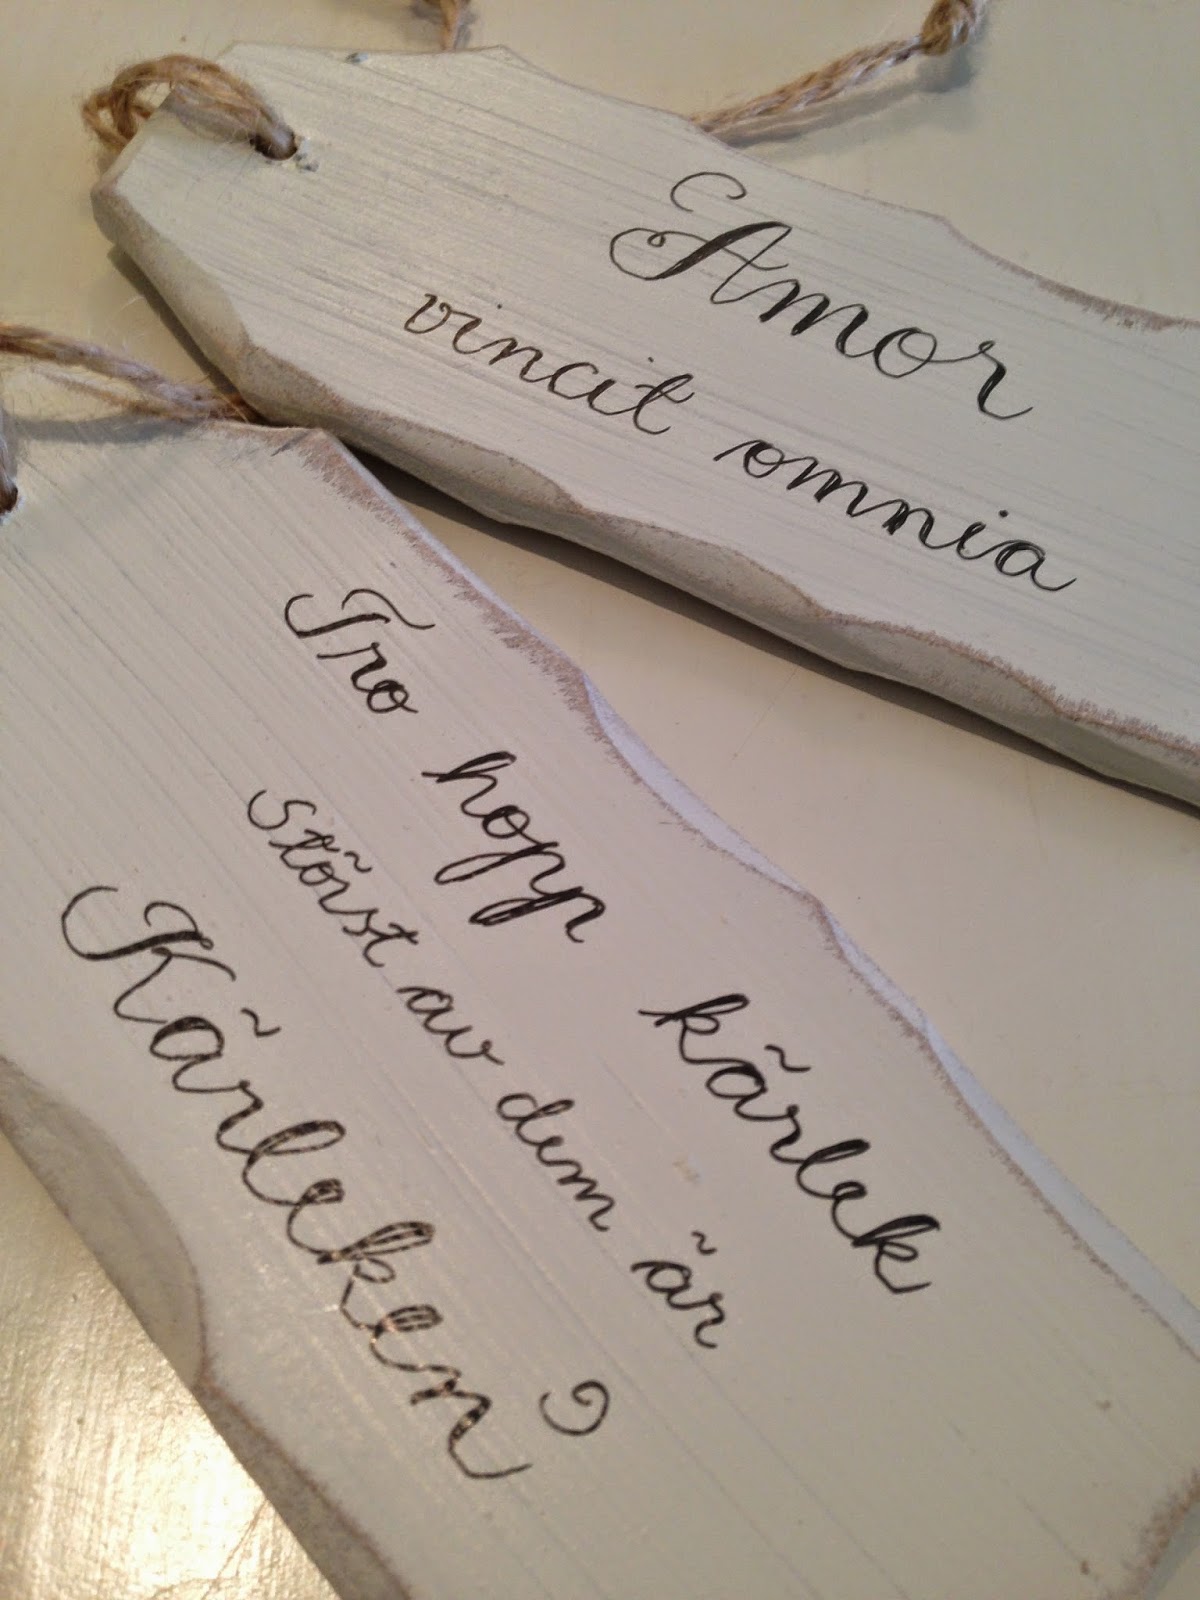 Amor
vincit omnia
Tro hopp kärlek
störst av dem är
Kärleken